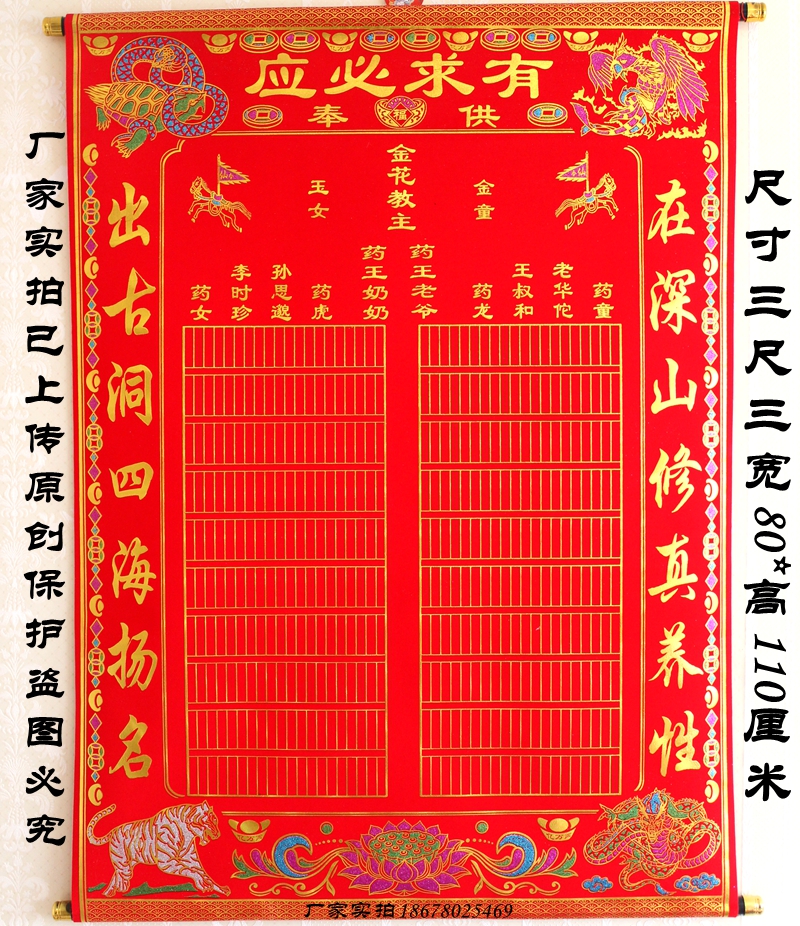 有求必应
供 福 奉
金花教主
金童
玉女
药王老爷
药王奶奶
药童
老华佗
王叔和
药龙
药虎
孙思邈
李时珍
药女
在深山修真养性
出古洞四海扬名
尺寸三尺三宽80*高110厘米
厂家实拍已上传原创保护盗图必究
厂家实拍18678025469